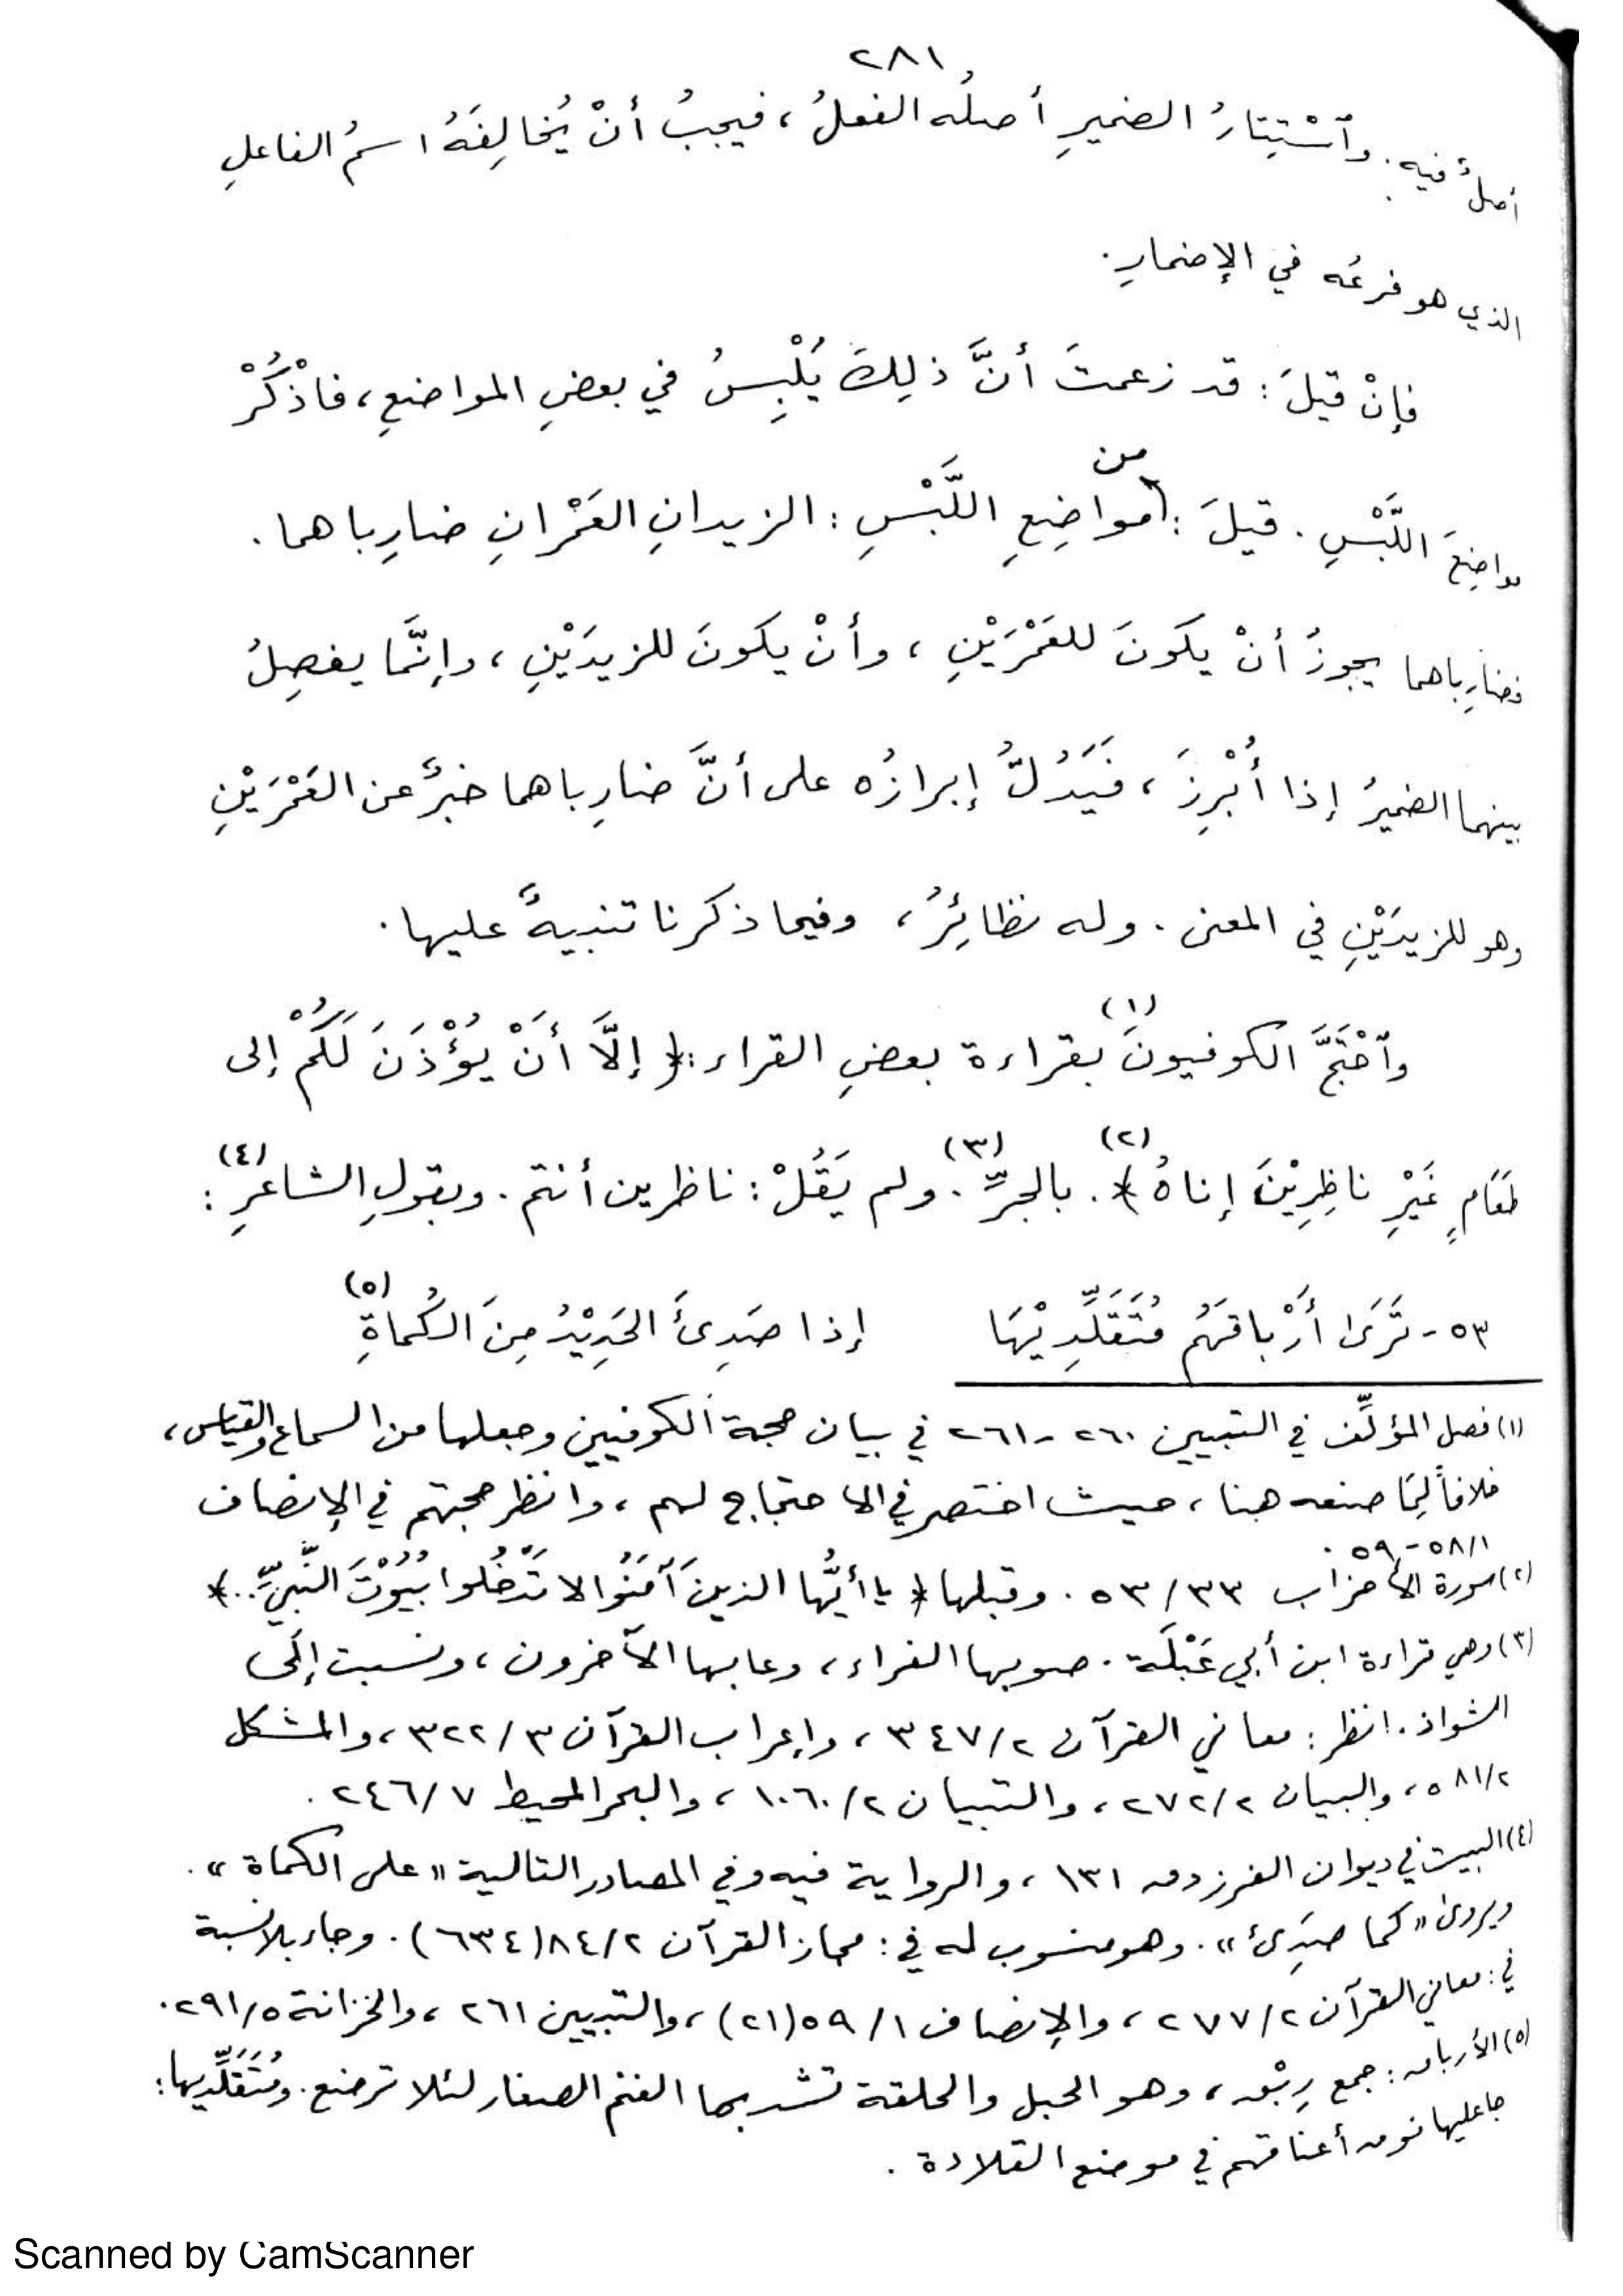 ٢٨١
أصلٌ فيه. وٱسْتِتارُ الضميرِ أصلُه الفعلُ، فيجبُ أنْ يُخالِفَهُ اسمُ الفاعلِ
الذي هو فرعُه في الإضمارِ.
فإنْ قيلَ: قد زعمتَ أنَّ ذلِكَ يُلْبِسُ في بعضِ المواضعِ، فاذْكُرْ
مواضِعَ اللَّبْسِ. قيلَ: من مواضِعِ اللَّبْسِ: الزيدانِ العَمْرانِ ضارِباهما.
فضارِباهما يجوزُ أنْ يكونَ للعَمْرَيْنِ، وأنْ يكونَ للزيدَيْنِ، وإنَّما يفصِلُ
بينهما الضميرُ إذا أُبْرِزَ، فَيَدُلُّ إبرازُه على أنَّ ضارِباهما خبرٌ عن العَمْرَيْنِ
وهو للزيدَيْنِ في المعنى. وله نظائِرُ، وفيما ذكرنا تنبيهٌ عليها.
وٱحْتَجَّ الكوفيونَ(١) بقراءة بعضِ القراء: ﴿إلَّا أَنْ يُؤْذَنَ لَكُمْ إلى
طَعَامٍ غَيْرِ ناظِرِيْنَ إناهُ﴾(٢). بالجرِّ(٣). ولم يَقُلْ: ناظرين أنتم. وبقولِ الشاعرِ(٤):
٥٣- تَرَى أَرْباقَهُم مُتَقَلِّدِيْهَا إذا صَدِئَ الحَدِيْدُ مِنَ الكُماةِ(٥)
(١) فصل المؤلِّف في التبيين ٢٦٠-٢٦١ في بيان حجة الكوفيين وجعلها من السماع والقياس،
خلافاً لِمَا صنعه هنا، حيث اختصر في الاحتجاج لهم، وانظر حجتهم في الإنصاف
٥٨/١-٥٩.
(٢) سورة الأحزاب ٣٣/٥٣. وقبلها ﴿يا أيُّها الذينَ آمَنُوا لا تَدْخُلوا بُيُوْتَ النَّبِيِّ..﴾
(٣) وهي قراءة ابن أبي عَبْلَة. صوبها الفراء، وعابها الآخرون، ونسبت إلى
الشواذ. انظر: معاني القرآن ٣٤٧/٢، وإعراب القرآن ٣٢٢/٣، والمشكل
٥٨١/٢، والبيان ٢٧٢/٢، والتبيان ١٠٦٠/٢، والبحر المحيط ٢٤٦/٧.
(٤) البيت في ديوان الفرزدق ١٣١، والرواية فيه وفي المصادر التالية «على الكماة».
ويروى «كما صَدِئَ». وهو منسوب له في: مجاز القرآن ٨٤/٢(٦٣٤). وجاء بلا نسبة
في: معاني القرآن ٢٧٧/٢، والإنصاف ٥٩/١(٢١)، والتبيين ٢٦١، والخزانة ٢٩١/٥.
(٥) الأرباق: جمع رِبْق، وهو الحبل والحلقة تشد بها الغنم الصغار لئلا ترضع. ومُتَقَلِّديها:
جاعليها فوق أعناقهم في موضع القلادة.
Scanned by CamScanner